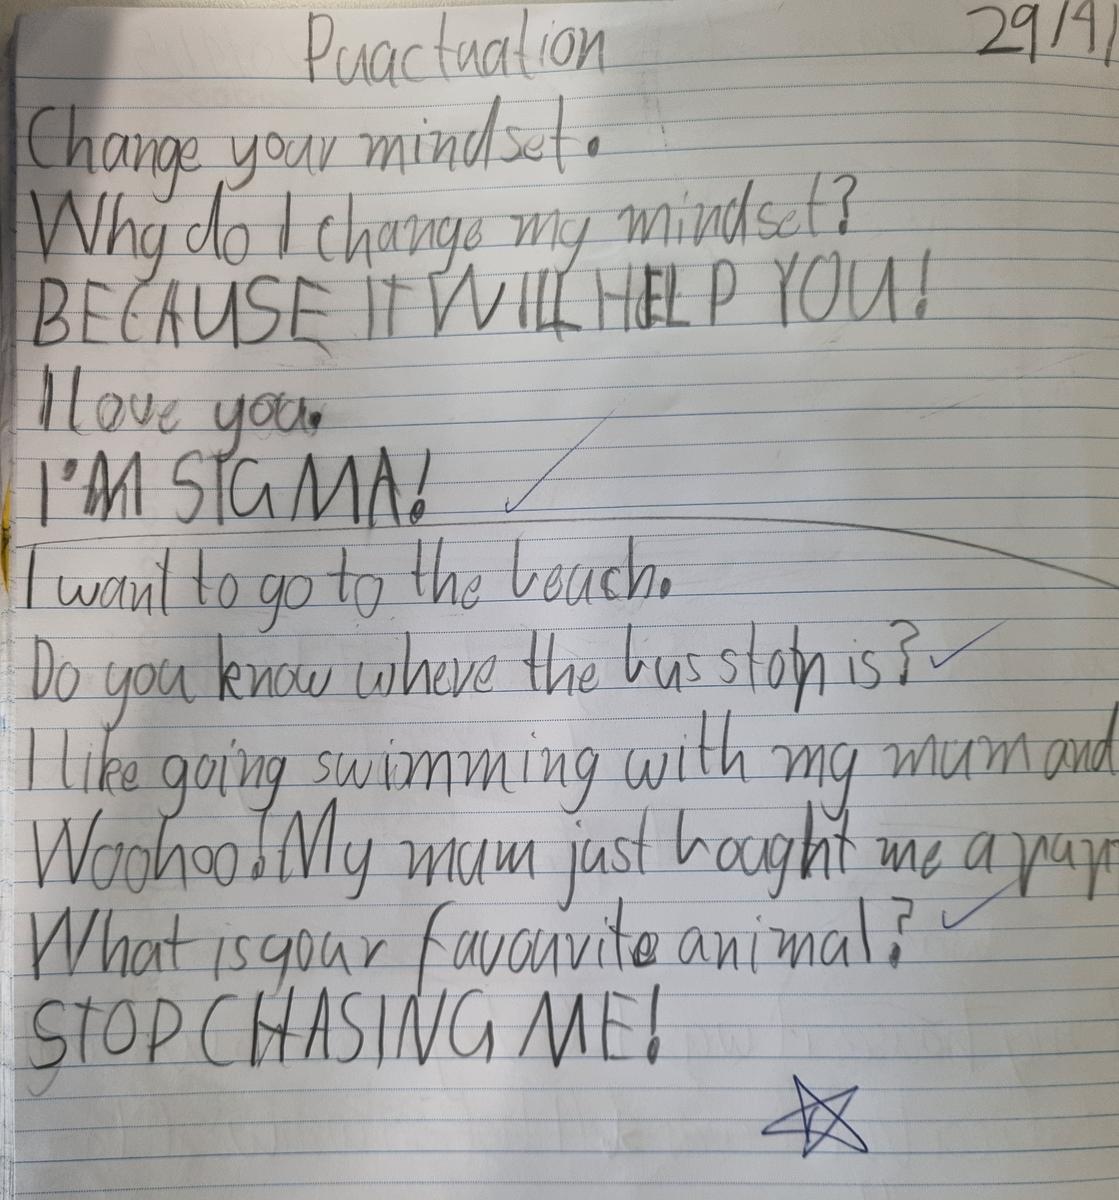 Punctuation 29/4/
Change your mindset.
Why do I change my mindset?
BECAUSE IT WILL HELP YOU!
I love you.
I'M SIGMA!
I want to go to the beach.
Do you know where the bus stop is?
I like going swimming with my mum and
Woohoo! My mum just bought me a
What is your favourite animal?
STOP CHASING ME!